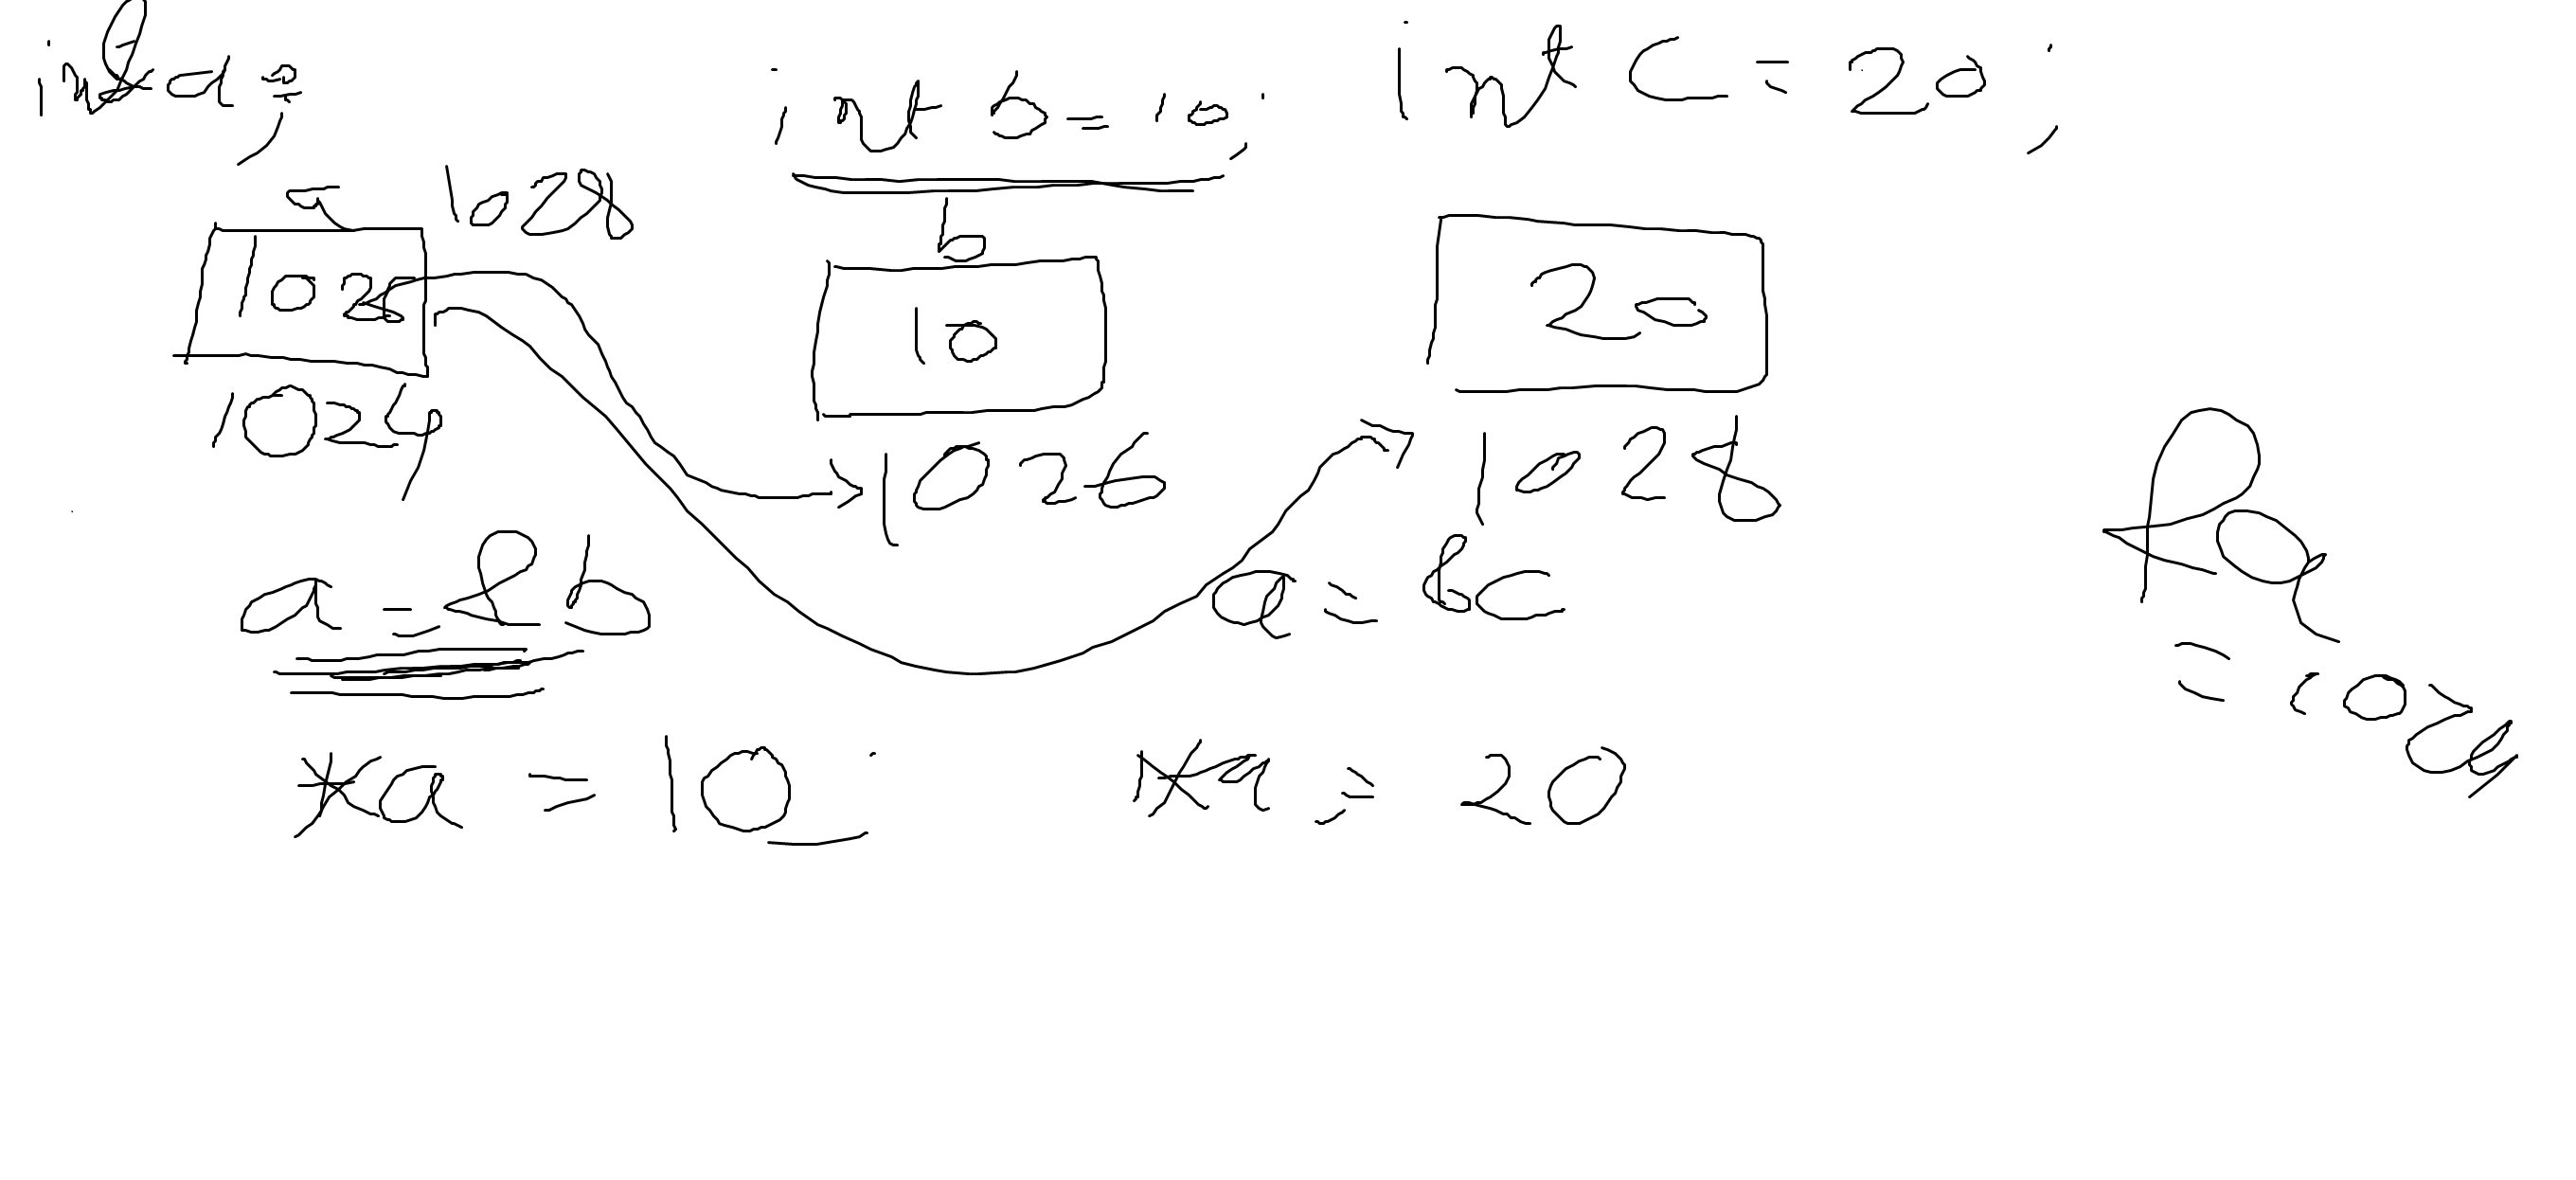 int b = 10;
int c = 20;
a
1028
b
10
20
1024
1026
1028
a = &b
a = &c
&a
= 1024
*a = 10
*a = 20